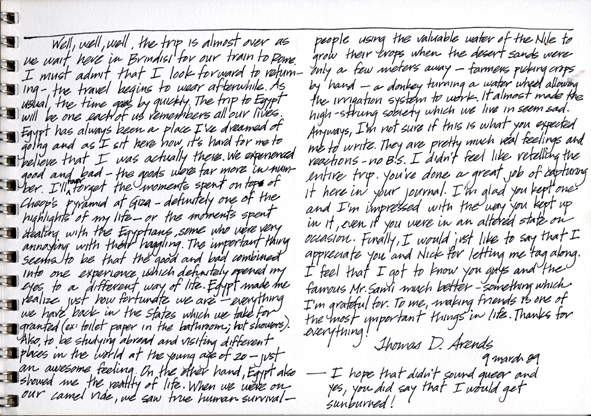 Well, well, well. the trip is almost over as
we wait here in Brindisi for our train to Rome.
I must admit that I look forward to return-
ing - the travel begins to wear afterwhile. As
usual, the time goes by quickly. The trip to Egypt
will be one each of us remembers all our lives.
Egypt has always been a place I've dreamed of
going and as I sit here now, it's hard for me to
believe that I was actually there. We experienced
good and bad - the goods were far more in num-
ber. I'll never forget the moments spent on top of
Cheop's pyramid at Giza - definitely one of the
highlights of my life - or the moments spent
dealing with the Egyptians, some who were very
annoying with their haggling. The important thing
seems to be that the good and bad combined
into one experience which definitely opened my
eyes to a different way of life. Egypt made me
realize just how fortunate we are - everything
we have back in the States which we take for
granted (ex: toilet paper in the bathroom, hot showers).
Also, to be studying abroad and visiting different
places in the world at the young age of 20 - just
an awesome feeling. On the other hand, Egypt also
showed me the reality of life. When we were on
our camel ride, we saw true human survival -
people using the valuable water of the Nile to
grow their crops when the desert sands were
only a few meters away - farmers picking crops
by hand - a donkey turning a water wheel allowing
the irrigation system to work. It almost made the
high-strung society which we live in seem sad.
Anyways, I'm not sure if this is what you expected
me to write. They are pretty much real feelings and
reactions - no B.S. I didn't feel like retelling the
entire trip. You've done a great job of capturing
it here in your journal. I'm glad you kept one
and I'm impressed with the way you kept up
in it, even if you were in an altered state on
occasion. Finally, I would just like to say that I
appreciate you and Nick for letting me tag along.
I feel that I got to know you guys and the
famous Mr. Sawil much better - something which
I'm grateful for. To me, making friends is one of
the most important things in life. Thanks for
everything!
Thomas D. Arends
9 march 89
- I hope that didn't sound queer and
yes, you did say that I would get
sunburned!